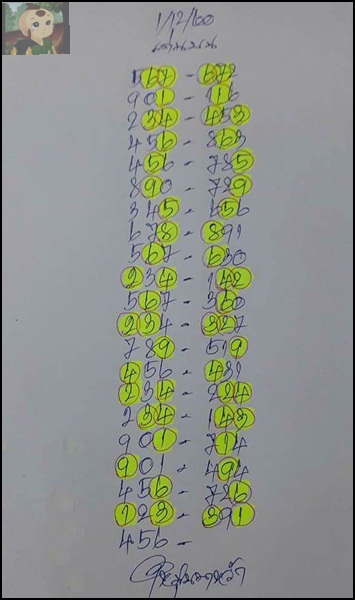 1/12/60
567 - 672
901 - 116
234 - 453
456 - 863
456 - 785
890 - 729
345 - 456
678 - 891
567 - 630
234 - 142
567 - 360
234 - 327
789 - 519
456 - 481
234 - 224
234 - 143
901 - 714
901 - 494
456 - 726
123 - 391
456 -